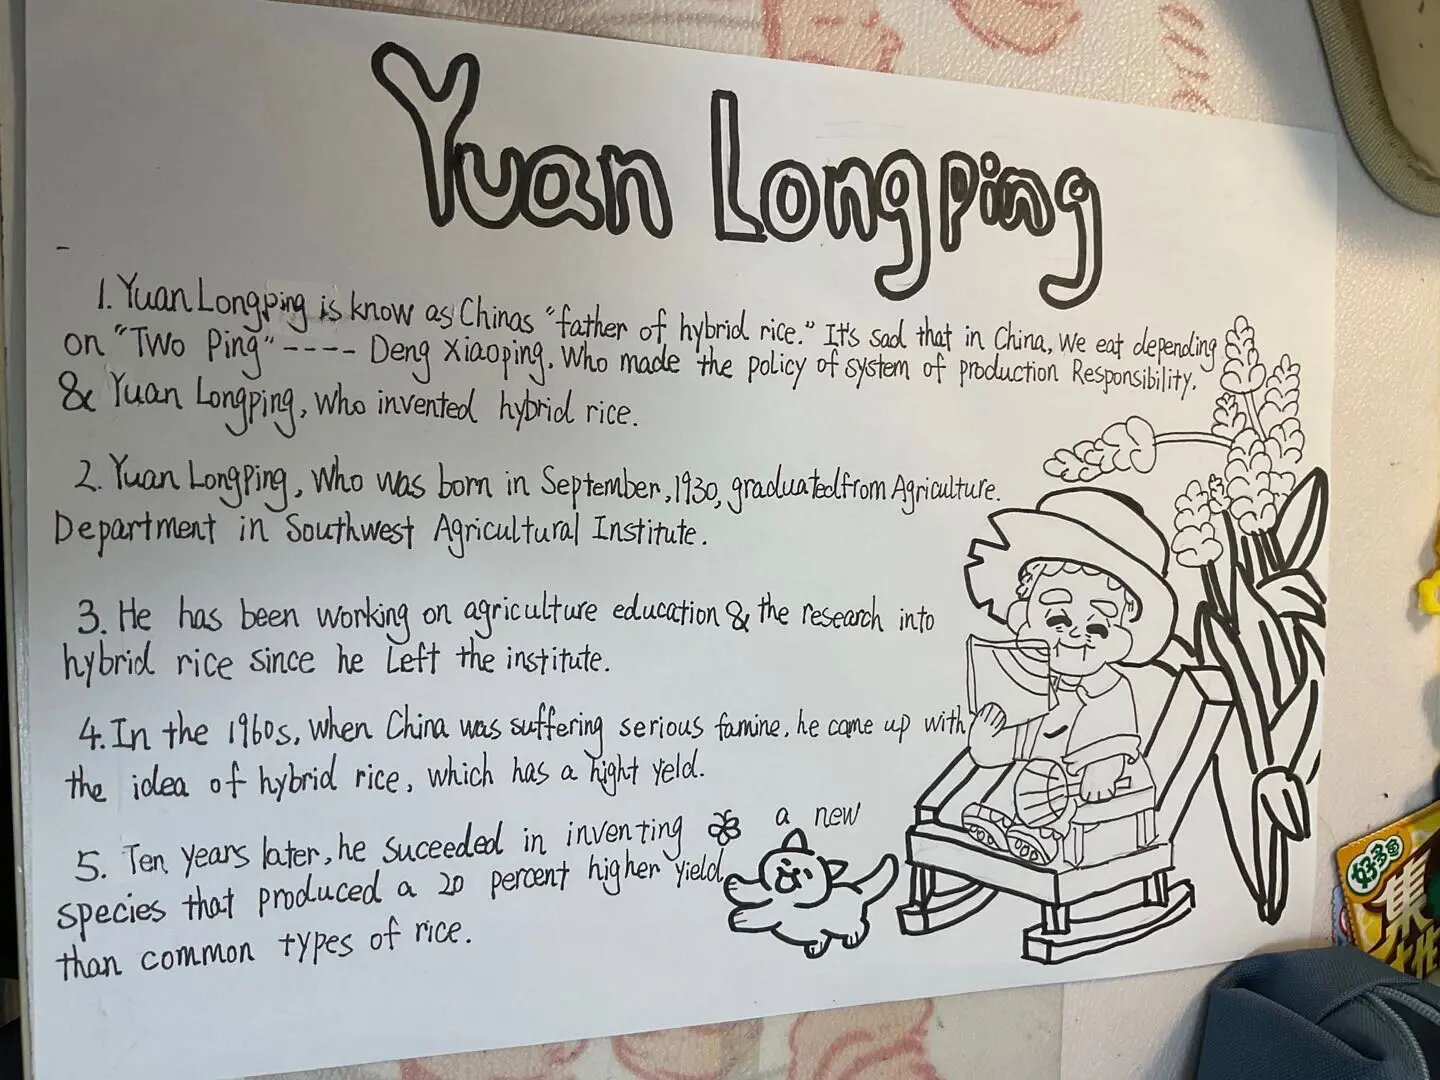 Yuan Longping
1. Yuan Longping is know as Chinas "father of hybrid rice." It's sad that in China, we eat depending
on "Two Ping" ---- Deng Xiaoping, who made the policy of system of production Responsibility.
& Yuan Longping, who invented hybrid rice.
2. Yuan Longping, who was born in September, 1930, graduated from Agriculture.
Department in Southwest Agricultural Institute.
3. He has been working on agriculture education & the research into
hybrid rice since he Left the institute.
4. In the 1960s, when China was suffering serious famine, he came up with
the idea of hybrid rice, which has a hight yeld.
5. Ten years later, he suceeded in inventing a new
species that produced a 20 percent higher yield
than common types of rice.
好多鱼